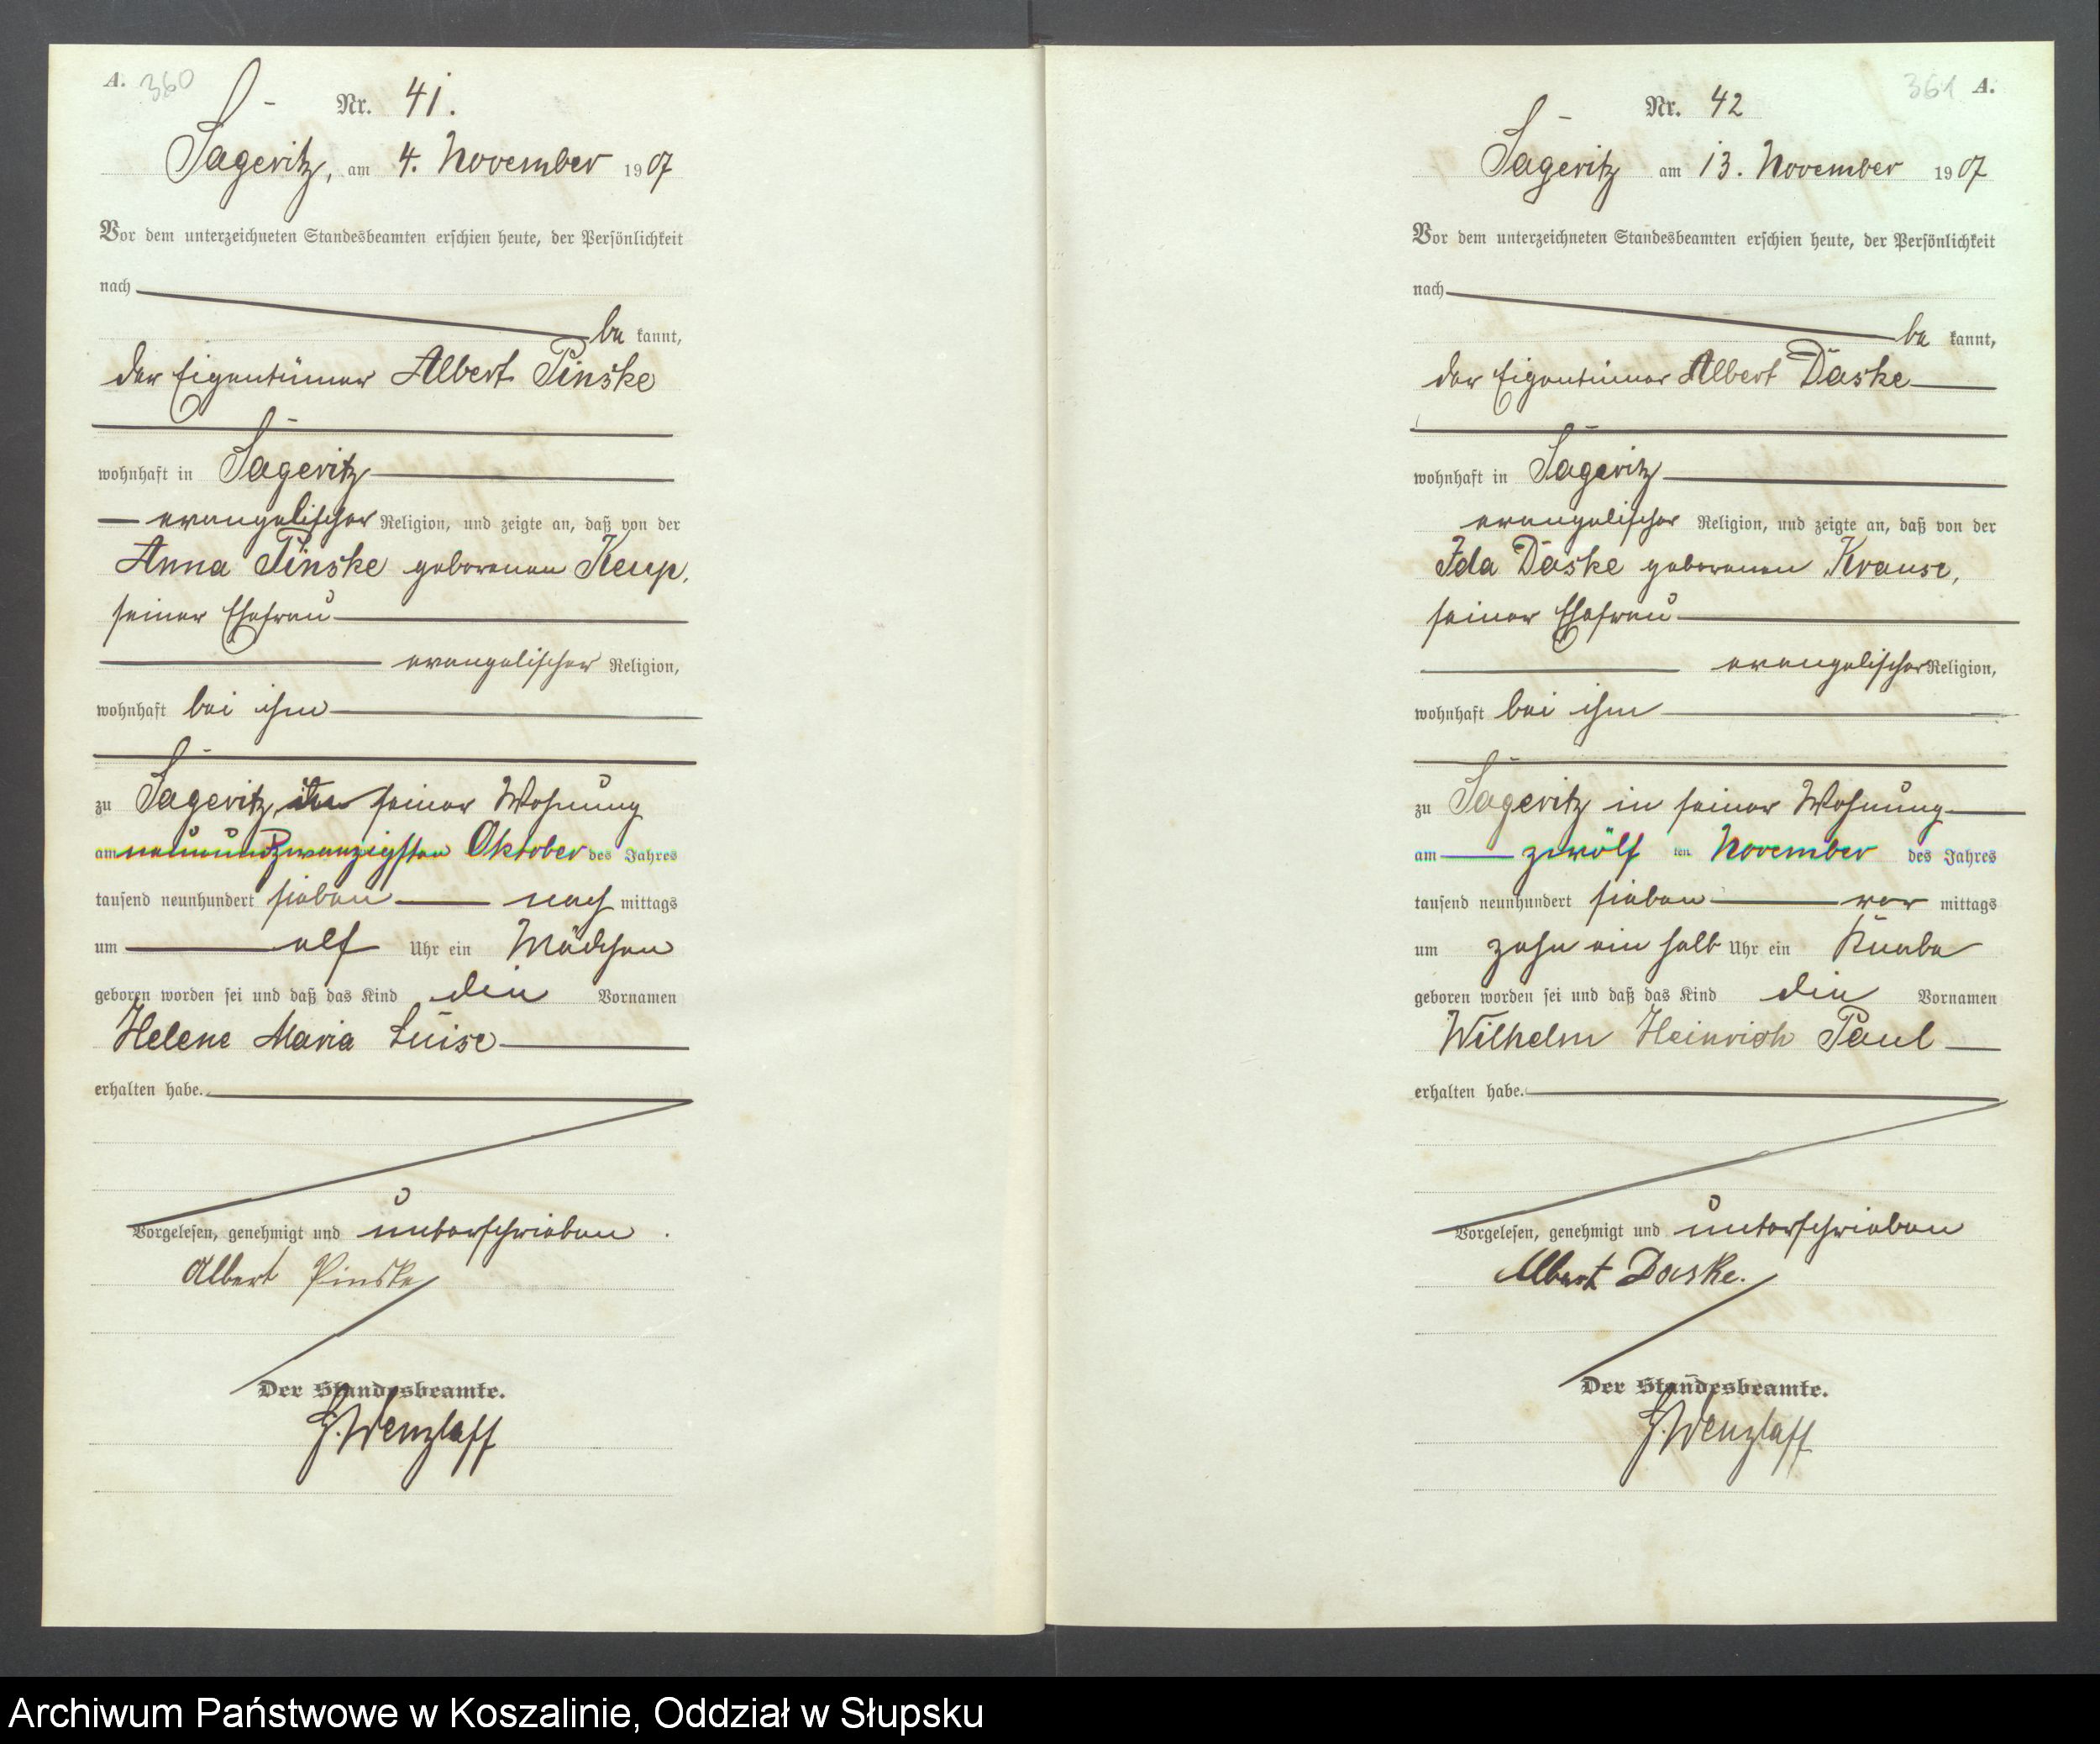 A. 360
Nr. 41.
Sageritz, am 4. November 1907
Vor dem unterzeichneten Standesbeamten erschien heute, der Persönlichkeit
nach
be kannt,
der Eigentümer Albert Pinske
wohnhaft in Sageritz
evangelischer Religion, und zeigte an, daß von der
Anna Pinske geborenen Keup,
seiner Ehefrau
evangelischer Religion,
wohnhaft bei ihm
zu Sageritz in seiner Wohnung
am neunundzwanzigsten Oktober des Jahres
tausend neunhundert sieben nach mittags
um elf Uhr ein Mädchen
geboren worden sei und daß das Kind die Vornamen
Helene Maria Luise
erhalten habe.
Vorgelesen, genehmigt und unterschrieben.
Albert Pinske
Der Standesbeamte.
G. Wenzlaff
361 A.
Nr. 42
Sageritz am 13. November 1907
Vor dem unterzeichneten Standesbeamten erschien heute, der Persönlichkeit
nach
be kannt,
der Eigentümer Albert Daske
wohnhaft in Sageritz
evangelischer Religion, und zeigte an, daß von der
Ida Daske geborenen Krause,
seiner Ehefrau
evangelischer Religion,
wohnhaft bei ihm
zu Sageritz in seiner Wohnung
am zwölf ten November des Jahres
tausend neunhundert sieben vor mittags
um zehn ein halb Uhr ein Knabe
geboren worden sei und daß das Kind die Vornamen
Wilhelm Heinrich Paul
erhalten habe.
Vorgelesen, genehmigt und unterschrieben
Albert Daske.
Der Standesbeamte.
G. Wenzlaff
Archiwum Państwowe w Koszalinie, Oddział w Słupsku